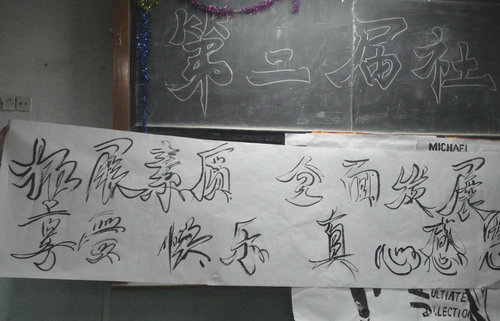 第二届社
拓展素质 全面发展
享受快乐 真心感
MICHAEL
ULTIATE
OLLECTION